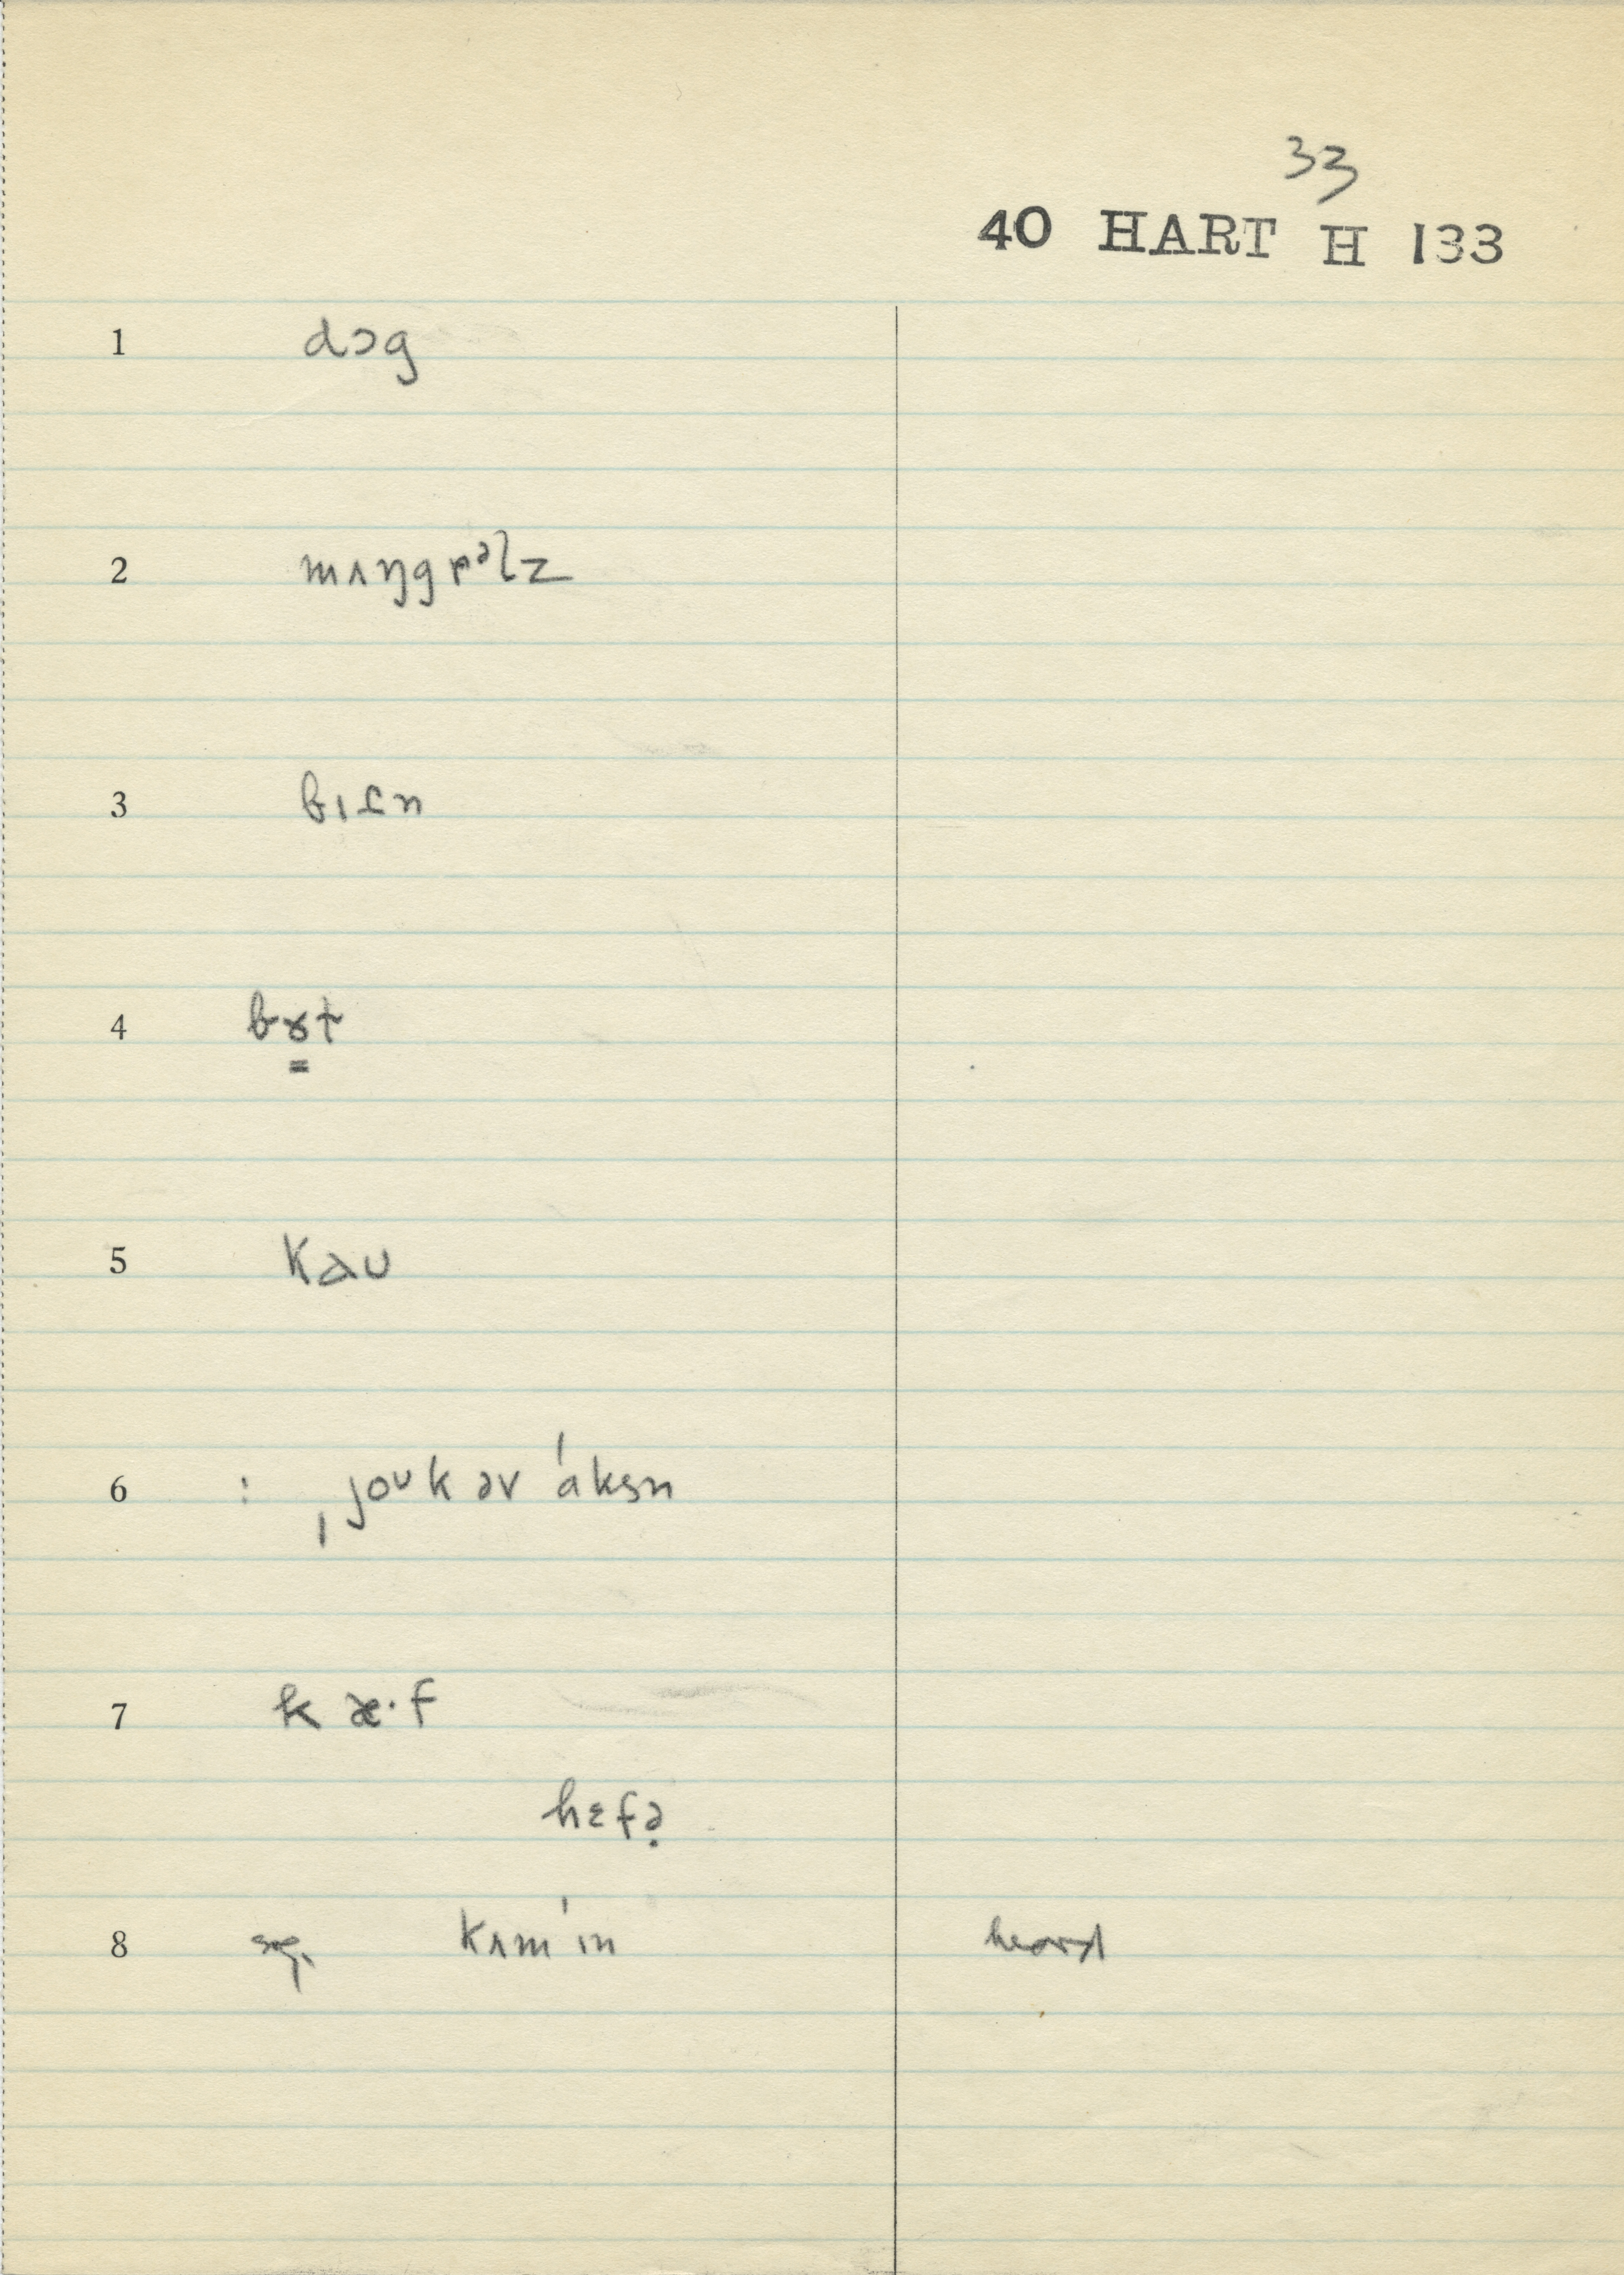 33
40 HART H 133
1 dɔg
2 mʌŋgrəlz
3 bɪɾn
4 bɤt
5 kɑu
6 : ˌjoʊk əv ˈɑksn
7 k æ·f
hɛfə̣
8 kʌmˈɪn heard